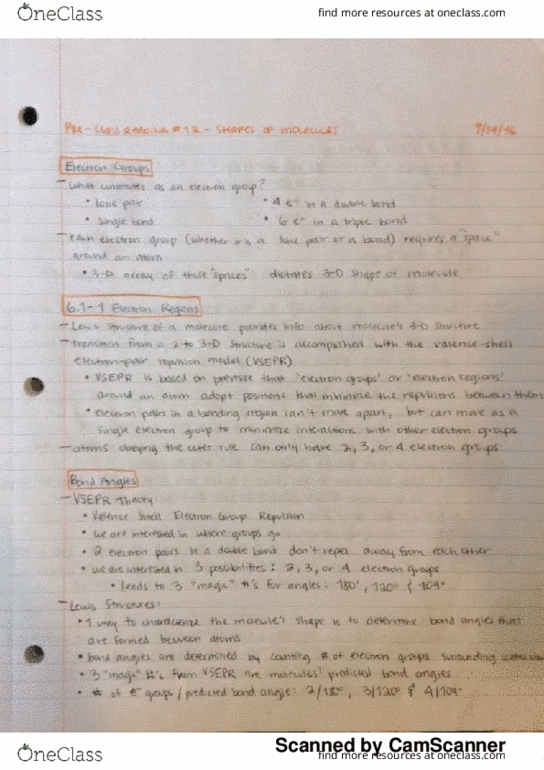 OneClass
find more resources at oneclass.com
PRE-CLASS READING #12 - SHAPES OF MOLECULES
Electron Groups
- What constitutes as an electron group?
• lone pair • 4 e⁻ in a double bond
• single bond • 6 e⁻ in a triple bond
- each electron group (whether it is a lone pair or a bond) requires a "space"
around an atom
• 3-D array of those "spaces" dictates 3-D shape of molecule
6.1-1 Electron Regions
- Lewis structure of a molecule provides info about molecule's 3-D structure
- transition from a 2 to 3-D structure is accomplished with the valence-shell
electron-pair repulsion model (VSEPR)
• VSEPR is based on premise that 'electron groups' or 'electron regions'
around an atom adopt positions that minimize the repulsions between them
• electron pairs in a bonding region can't move apart, but can move as a
single electron group to minimize interactions with other electron groups
- atoms obeying the octet rule can only have 2, 3, or 4 electron groups
Bond Angles
- VSEPR Theory:
• Valence Shell Electron Group Repulsion
• we are interested in where groups go
• 2 electron pairs in a double bond don't repel away from each other
• we are interested in 3 possibilities: 2, 3, or 4 electron groups
• leads to 3 "magic" #'s for angles: 180°, 120° & 109°
- Lewis Structures:
• 1 way to characterize the molecule's shape is to determine bond angles that
are formed between atoms
• bond angles are determined by counting # of electron groups surrounding
• 3 "magic" #'s from VSEPR are molecules' predicted bond angles
• # of e⁻ groups / predicted bond angle: 2/180°, 3/120° & 4/109°
Scanned by CamScanner
OneClass
find more resources at oneclass.com